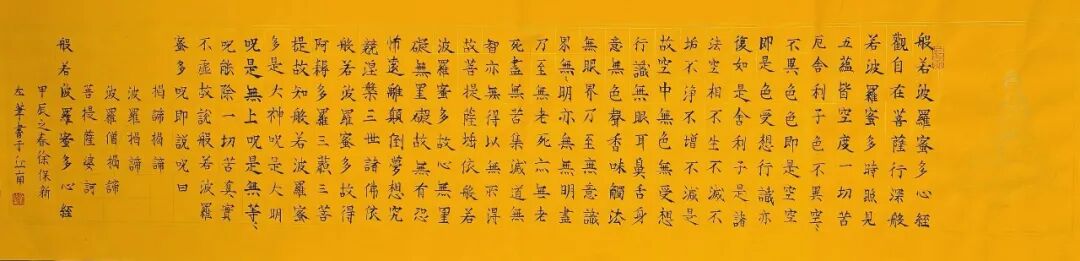 般若波羅蜜多心經
觀自在菩薩行深般
若波羅蜜多時照見
五蘊皆空度一切苦
厄舍利子色不異空、
不異色色即是空空
即是色受想行識亦
復如是舍利子是諸
法空相不生不滅不
垢不淨不增不減是
故空中無色無受想
行識無眼耳鼻舌身
意無色聲香味觸法
無眼界乃至無意識
界無、明亦無無明盡
乃至無老死亦無老
死盡無苦集滅道無
智亦無得以無所得
故菩提薩埵依般若
波羅蜜多故心無罣
礙無罣礙故無有恐
怖遠離顛倒夢想究
竟涅槃三世諸佛依
般若波羅蜜多故得
阿耨多羅三藐三菩
提故知般若波羅蜜
多是大神呪是大明
呪是無上呪是無等、
呪能除一切苦真實
不虛故說般若波羅
蜜多呪即說呪曰
揭諦揭諦
波羅揭諦
波羅僧揭諦
菩提薩婆訶
般若波羅蜜多心經
甲辰之春徐保新
左筆書于